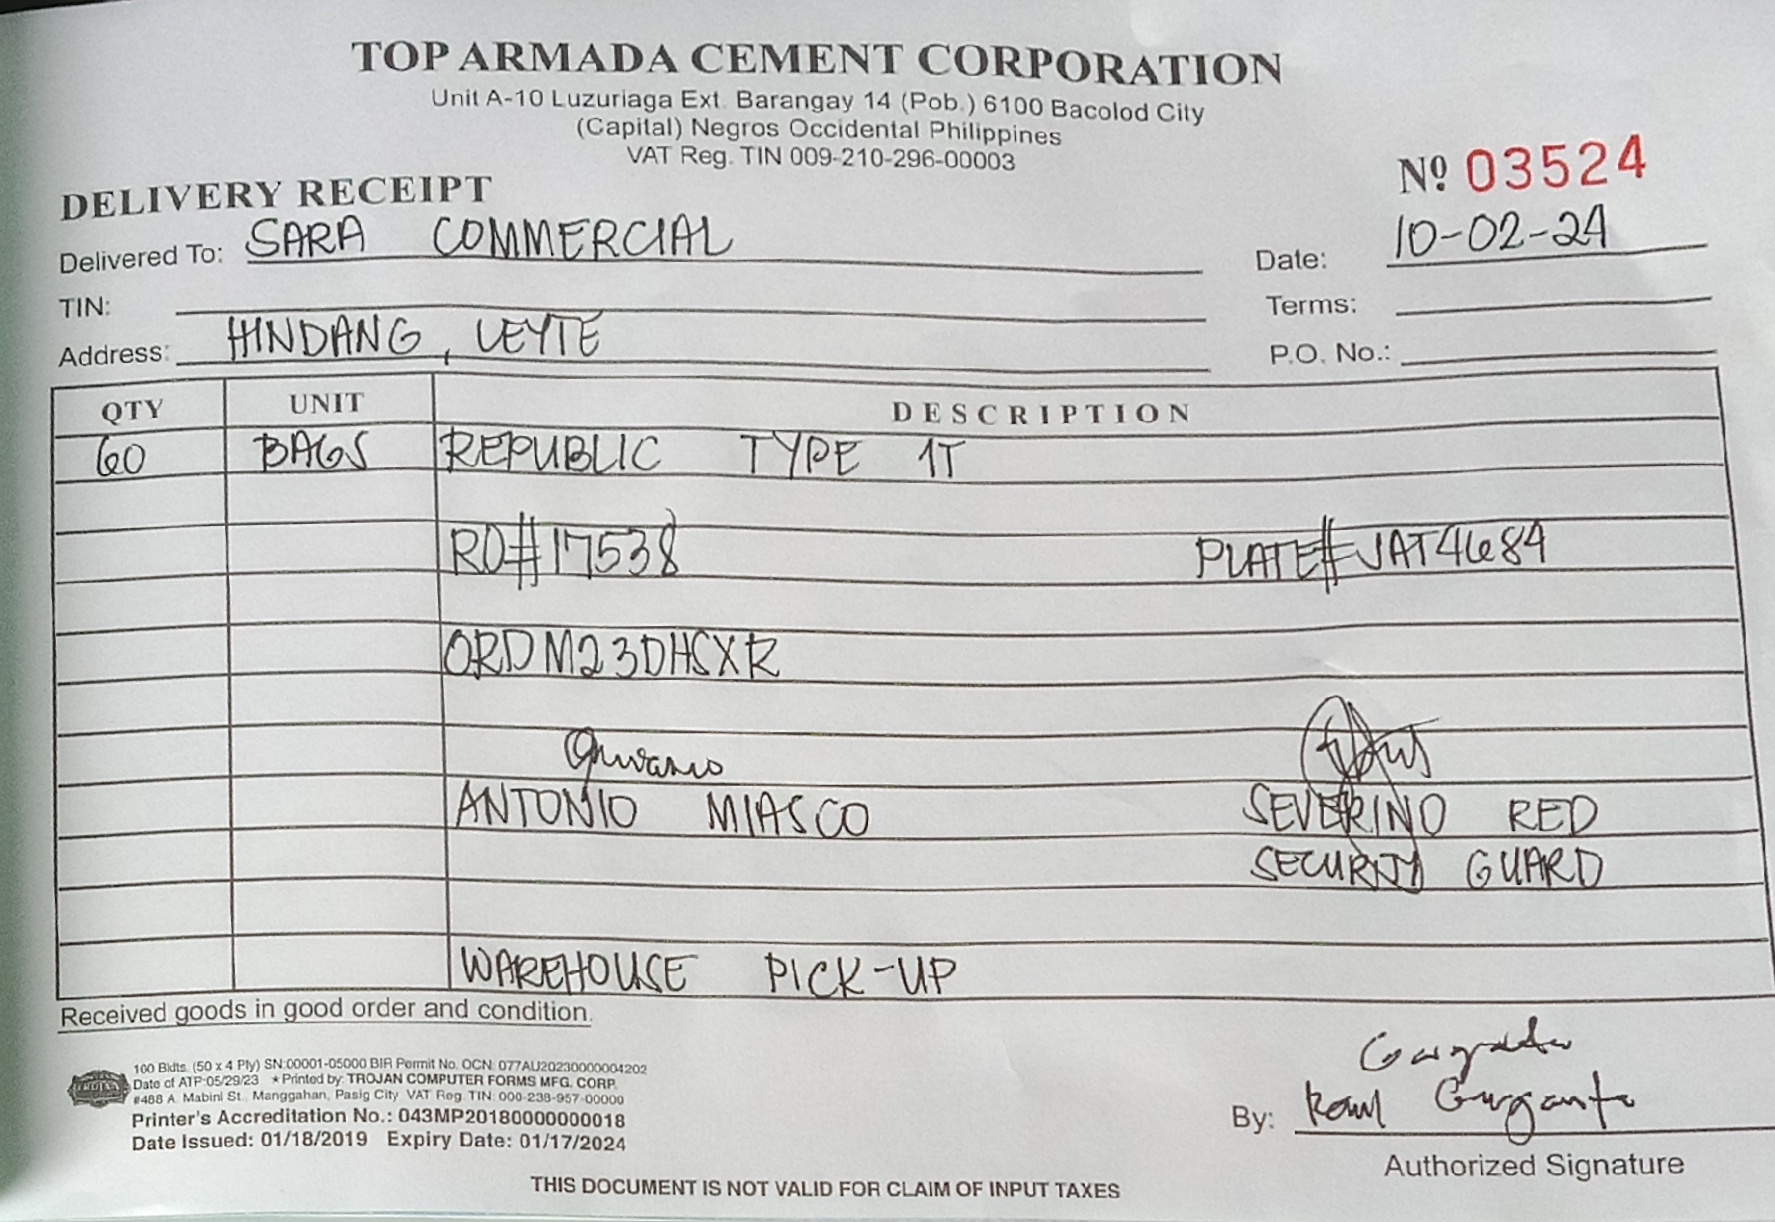 TOP ARMADA CEMENT CORPORATION
Unit A-10 Luzuriaga Ext. Barangay 14 (Pob.) 6100 Bacolod City
(Capital) Negros Occidental Philippines
VAT Reg. TIN 009-210-296-00003
Nº 03524
DELIVERY RECEIPT
Delivered To: SARA COMMERCIAL
Date: 10-02-24
TIN:
Terms:
Address: HINDANG, LEYTE
P.O. No.:
QTY UNIT DESCRIPTION
60 BAGS REPUBLIC TYPE 1T
RO#17538 PLATE# JAT4684
ORDM23DHSXR
ANTONIO MIASCO SEVERINO RED
SECURITY GUARD
WAREHOUSE PICK-UP
Received goods in good order and condition.
100 Bklts. (50 x 4 Ply) SN:00001-05000 BIR Permit No. OCN: 077AU20230000004202
Date of ATP:05/29/23 * Printed by: TROJAN COMPUTER FORMS MFG. CORP.
#488 A. Mabini St., Manggahan, Pasig City VAT Reg. TIN: 000-238-957-00000
Printer's Accreditation No.: 043MP20180000000018
Date Issued: 01/18/2019 Expiry Date: 01/17/2024
By:
Authorized Signature
THIS DOCUMENT IS NOT VALID FOR CLAIM OF INPUT TAXES